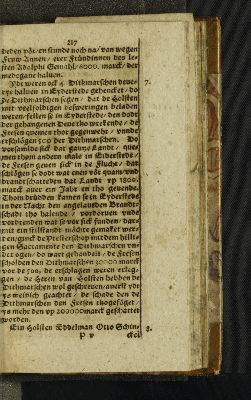 217
deden vör: en stunde noch na/ van wegen
Fruw Annen/ erer Fründinnen des le-
sten Adolphi Gemahl/ 6000. marck/ der
medegave haluen.
Ydt weren ock 4. Dithmarschen deue- 7.
rye haluen in Eyderstede gehencket/ do
de Dithmarschen segen/ dat de Holsten
mit veelfoldigen besweringen beladen
weren/ fellen se in Eyderstede/ den dodt
der gehangenen Deue tho wrekende/ de
Fresen quemen thor gegenwehr/ vnnde
erschlögen 500 der Dithmarschen. Do
vorsamlde sick dat gantze Lande/ que-
men thom andern male in Eiderstede/
de Fresen geuen sick in de Flucht/ dar
schlögen se dodt wat enen vör quam/ vnd
brandtschatteden dat Lande vp 1800.
marck auer ein Jahr en tho geuende.
Thom drüdden kamen se in Eyderstede
in der Nacht den angelaueden Brandt-
schatt tho halende/ vorhoreden vnde
vorbrenden wat se vor sick funden/ dar-
mit ein stillstandt möchte gemaket wer-
den/ ginck de Presterschop mit dem billi-
gen Sacramente den Dithmarschen vn-
der ogen/ do wart gehandelt/ de Fresen
scholden den Dithmarschen 30000 marck
vor de 500, de erschlagen weren erleg-
gen/ de Heren van Holsten hebben de
Dithmarschen wol geschreuen/ auerst ydt
ys weinich geachtet/ de schade den de
Dithmarschen den Fresen thogeföget/
ys mehr den vp 200000 marck geschattet
worden.
Ein Holsten Eddelman Otto Schin- 8.
P v ckel